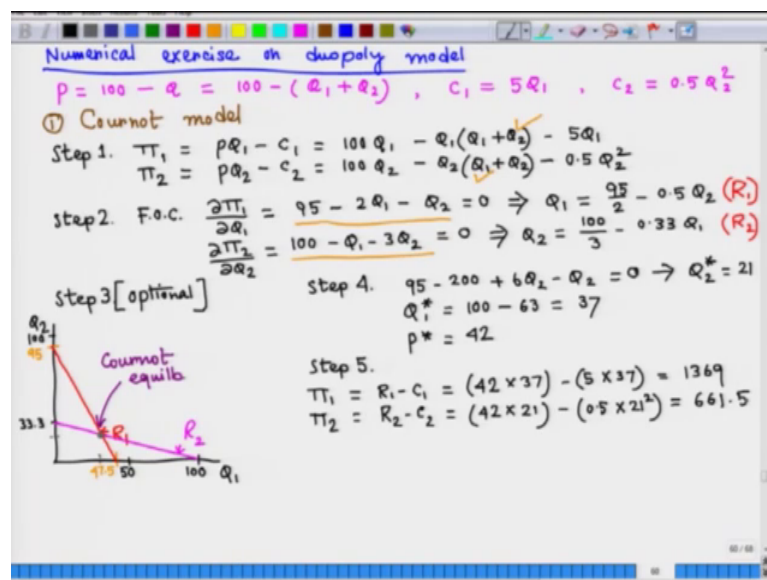 Numerical exercise on duopoly model
P = 100 - Q = 100 - (Q₁ + Q₂) , C₁ = 5Q₁ , C₂ = 0.5 Q₂²
① Cournot model
Step 1. π₁ = PQ₁ - C₁ = 100 Q₁ - Q₁(Q₁ + Q₂) - 5Q₁
π₂ = PQ₂ - C₂ = 100 Q₂ - Q₂(Q₁ + Q₂) - 0.5 Q₂²
Step 2. F.O.C. ∂π₁/∂Q₁ = 95 - 2Q₁ - Q₂ = 0 ⇒ Q₁ = 95/2 - 0.5 Q₂ (R₁)
∂π₂/∂Q₂ = 100 - Q₁ - 3Q₂ = 0 ⇒ Q₂ = 100/3 - 0.33 Q₁ (R₂)
Step 3 [optional]
Q₂
100
95
Cournot
equilb
33.3
R₁
R₂
47.5
50
100
Q₁
Step 4. 95 - 200 + 6Q₂ - Q₂ = 0 → Q₂* = 21
Q₁* = 100 - 63 = 37
P* = 42
Step 5.
π₁ = R₁ - C₁ = (42 × 37) - (5 × 37) = 1369
π₂ = R₂ - C₂ = (42 × 21) - (0.5 × 21²) = 661.5
60/60
60